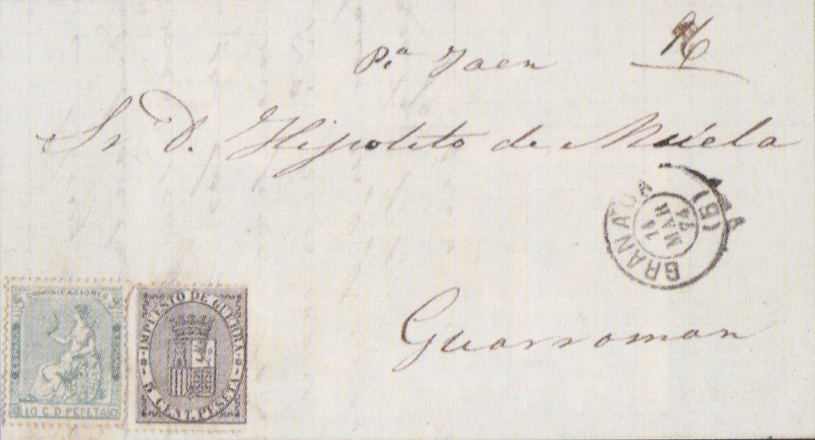 Pª Jaen
Sr. D. Hipolito de Muela
GRANADA
11
MAR
74
(5)
Guarroman
COMUNICACIONES
ESPAÑA
10 C. D PESETA
IMPUESTO DE GUERRA
5 CENT. PESETA